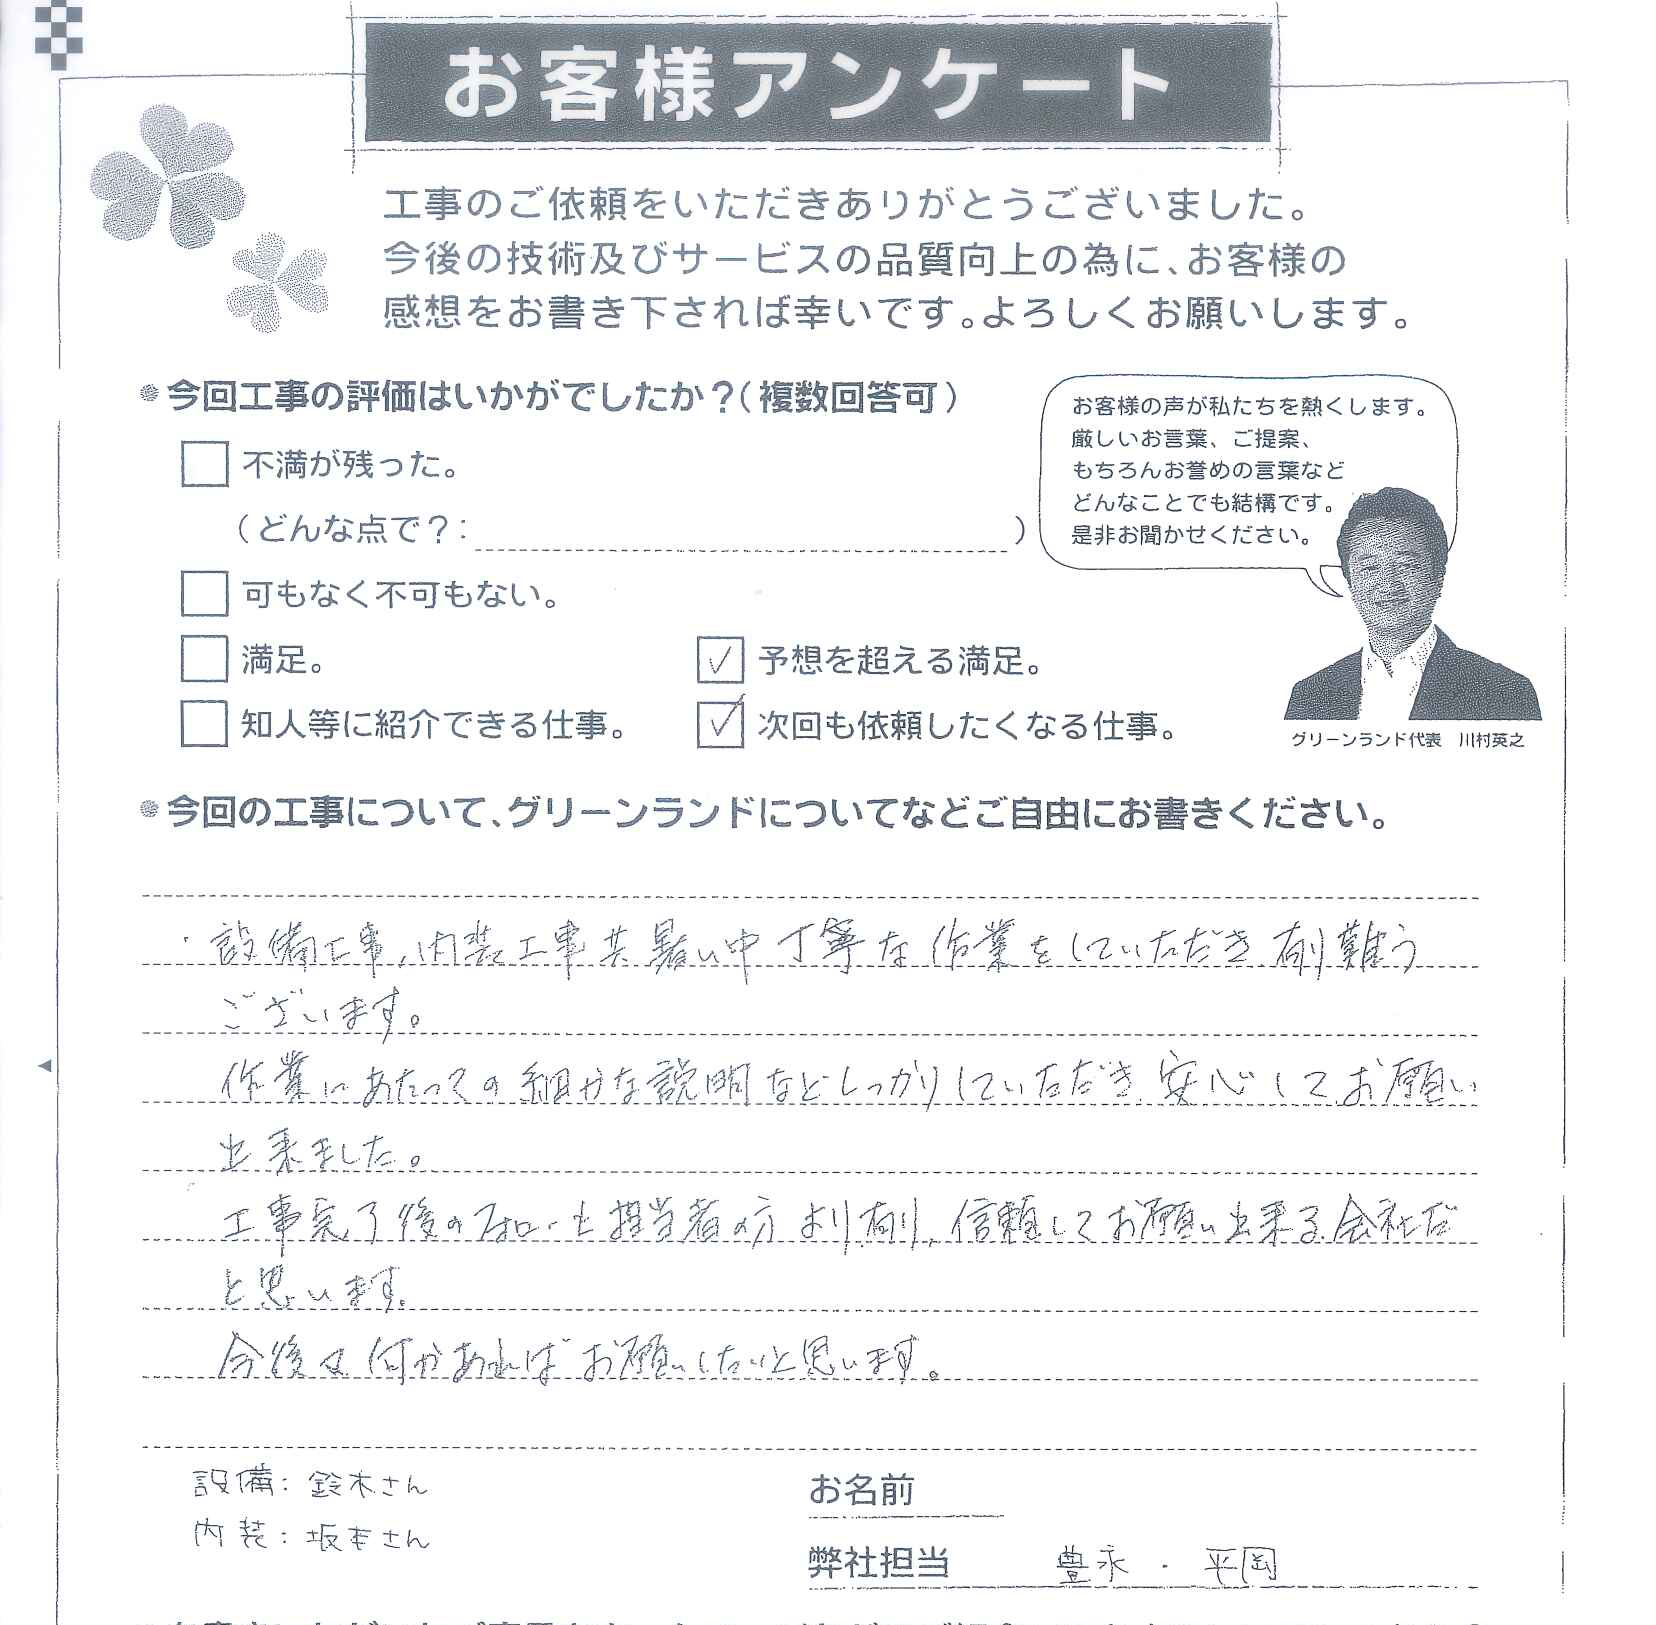 お客様アンケート
工事のご依頼をいただきありがとうございました。
今後の技術及びサービスの品質向上の為に、お客様の
感想をお書き下されば幸いです。よろしくお願いします。
今回工事の評価はいかがでしたか？(複数回答可)
不満が残った。
(どんな点で？: )
可もなく不可もない。
満足。
予想を超える満足。
知人等に紹介できる仕事。
次回も依頼したくなる仕事。
お客様の声が私たちを熱くします。
厳しいお言葉、ご提案、
もちろんお誉めの言葉など
どんなことでも結構です。
是非お聞かせください。
グリーンランド代表 川村英之
今回の工事について、グリーンランドについてなどご自由にお書きください。
・設備工事、内装工事共暑い中丁寧な作業をしていただき有難う
ございます。
作業にあたっての細かな説明などしっかりしていただき、安心してお願い
出来ました。
工事完了後のフォローも担当者の方より有り、信頼してお願い出来る会社だ
と思います。
今後も何かあればお願いしたいと思います。
設備：鈴木さん
内装：坂本さん
お名前
弊社担当 豊永・平岡